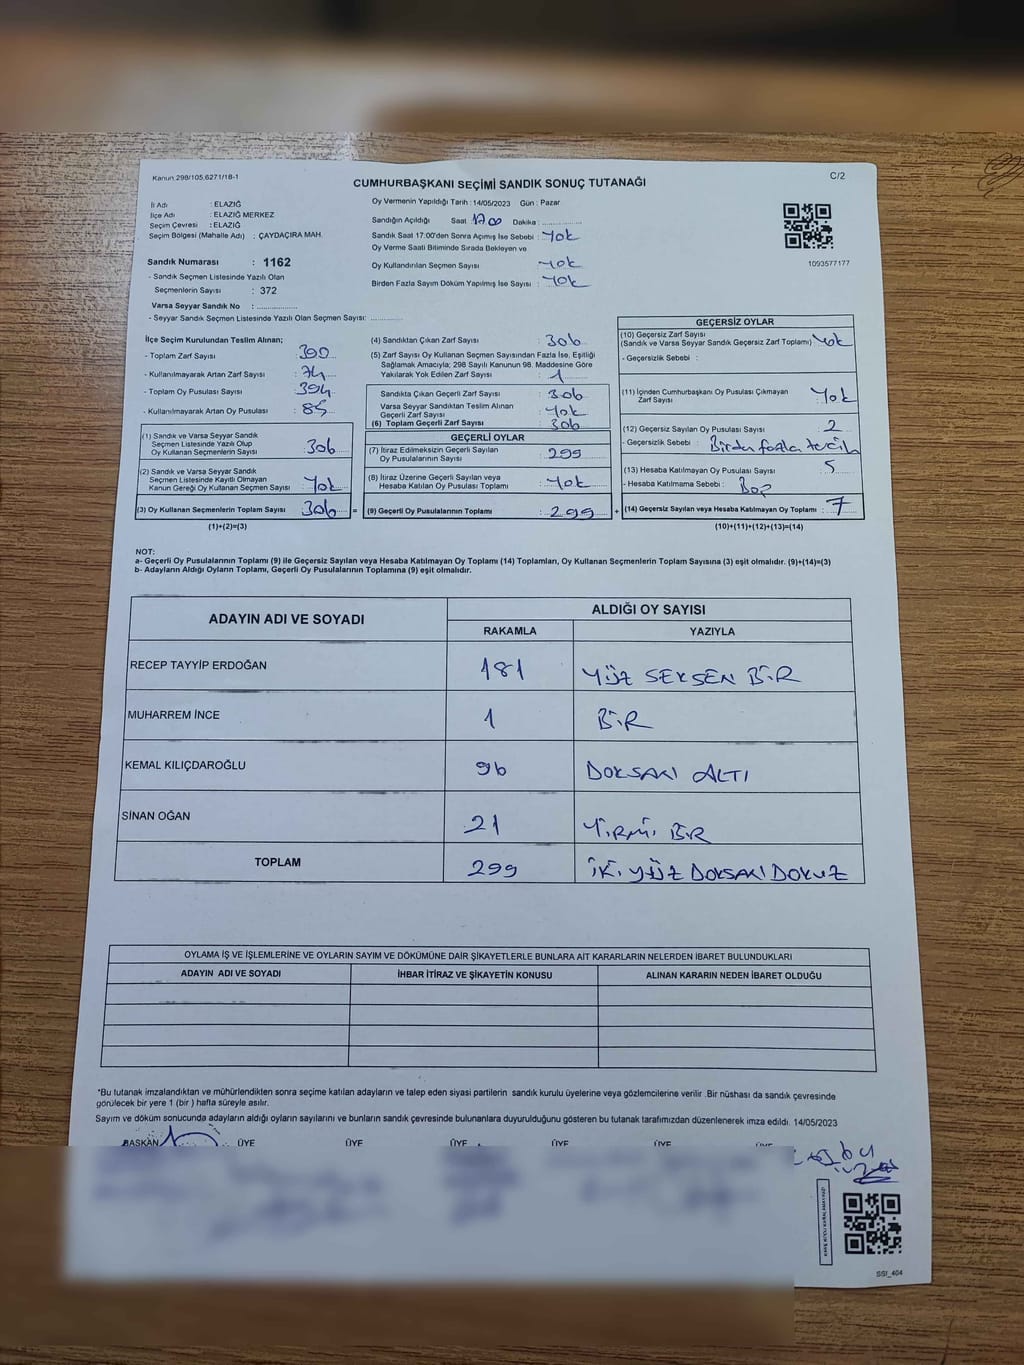 Kanun 298/105,6271/18-1
C/2
CUMHURBAŞKANI SEÇİMİ SANDIK SONUÇ TUTANAĞI
İl Adı : ELAZIĞ
İlçe Adı : ELAZIĞ MERKEZ
Seçim Çevresi : ELAZIĞ
Seçim Bölgesi (Mahalle Adı) : ÇAYDAÇIRA MAH.
Sandık Numarası : 1162
- Sandık Seçmen Listesinde Yazılı Olan
Seçmenlerin Sayısı : 372
Varsa Seyyar Sandık No : ................
- Seyyar Sandık Seçmen Listesinde Yazılı Olan Seçmen Sayısı: ............
Oy Vermenin Yapıldığı Tarih : 14/05/2023 Gün : Pazar
Sandığın Açıldığı Saat 17.00 Dakika : ................
Sandık Saat 17:00'den Sonra Açımış İse Sebebi : Yok
Oy Verme Saati Bitiminde Sırada Bekleyen ve
Oy Kullandırılan Seçmen Sayısı Yok
Birden Fazla Sayım Döküm Yapılmış İse Sayısı : Yok
1093577177
İlçe Seçim Kurulundan Teslim Alınan;
- Toplam Zarf Sayısı : 390
- Kullanılmayarak Artan Zarf Sayısı : 74
- Toplam Oy Pusulası Sayısı : 394
- Kullanılmayarak Artan Oy Pusulası : 85
(1) Sandık ve Varsa Seyyar Sandık
Seçmen Listesinde Yazılı Olup
Oy Kullanan Seçmenlerin Sayısı : 306
(2) Sandık ve Varsa Seyyar Sandık
Seçmen Listesinde Kayıtlı Olmayan
Kanun Gereği Oy Kullanan Seçmen Sayısı : Yok
(3) Oy Kullanan Seçmenlerin Toplam Sayısı : 306
(1)+(2)=(3)
(4) Sandıktan Çıkan Zarf Sayısı : 306
(5) Zarf Sayısı Oy Kullanan Seçmen Sayısından Fazla İse, Eşitliği
Sağlamak Amacıyla; 298 Sayılı Kanunun 98. Maddesine Göre
Yakılarak Yok Edilen Zarf Sayısı : 1
Sandıkta Çıkan Geçerli Zarf Sayısı : 306
Varsa Seyyar Sandıktan Teslim Alınan
Geçerli Zarf Sayısı : Yok
(6) Toplam Geçerli Zarf Sayısı : 306
GEÇERLİ OYLAR
(7) İtiraz Edilmeksizin Geçerli Sayılan
Oy Pusulalarının Sayısı : 299
(8) İtiraz Üzerine Geçerli Sayılan veya
Hesaba Katılan Oy Pusulası Toplamı : Yok
= (9) Geçerli Oy Pusulalarının Toplamı : 299 +
GEÇERSİZ OYLAR
(10) Geçersiz Zarf Sayısı
(Sandık ve Varsa Seyyar Sandık Geçersiz Zarf Toplamı) Yok
- Geçersizlik Sebebi :
(11) İçinden Cumhurbaşkanı Oy Pusulası Çıkmayan
Zarf Sayısı : Yok
(12) Geçersiz Sayılan Oy Pusulası Sayısı : 2
- Geçersizlik Sebebi : Birden fazla tercih
(13) Hesaba Katılmayan Oy Pusulası Sayısı : 5
- Hesaba Katılmama Sebebi : Boş
(14) Geçersiz Sayılan veya Hesaba Katılmayan Oy Toplamı : 7
(10)+(11)+(12)+(13)=(14)
NOT:
a- Geçerli Oy Pusulalarının Toplamı (9) ile Geçersiz Sayılan veya Hesaba Katılmayan Oy Toplamı (14) Toplamları, Oy Kullanan Seçmenlerin Toplam Sayısına (3) eşit olmalıdır. (9)+(14)=(3)
b- Adayların Aldığı Oyların Toplamı, Geçerli Oy Pusulalarının Toplamına (9) eşit olmalıdır.
ADAYIN ADI VE SOYADI
ALDIĞI OY SAYISI
RAKAMLA YAZIYLA
RECEP TAYYİP ERDOĞAN 181 YÜZ SEKSEN BİR
MUHARREM İNCE 1 BİR
KEMAL KILIÇDAROĞLU 96 DOKSAN ALTI
SİNAN OĞAN 21 YİRMİ BİR
TOPLAM 299 İKİ YÜZ DOKSAN DOKUZ
OYLAMA İŞ VE İŞLEMLERİNE VE OYLARIN SAYIM VE DÖKÜMÜNE DAİR ŞİKAYETLERLE BUNLARA AİT KARARLARIN NELERDEN İBARET BULUNDUKLARI
ADAYIN ADI VE SOYADI İHBAR İTİRAZ VE ŞİKAYETİN KONUSU ALINAN KARARIN NEDEN İBARET OLDUĞU
*Bu tutanak imzalandıktan ve mühürlendikten sonra seçime katılan adayların ve talep eden siyasi partilerin sandık kurulu üyelerine veya gözlemcilerine verilir .Bir nüshası da sandık çevresinde
görülecek bir yere 1 (bir ) hafta süreyle asılır.
Sayım ve döküm sonucunda adayların aldığı oyların sayılarını ve bunların sandık çevresinde bulunanlara duyurulduğunu gösteren bu tutanak tarafımızdan düzenlenerek imza edildi. 14/05/2023
BAŞKAN ÜYE ÜYE ÜYE ÜYE ÜYE
SSİ_404